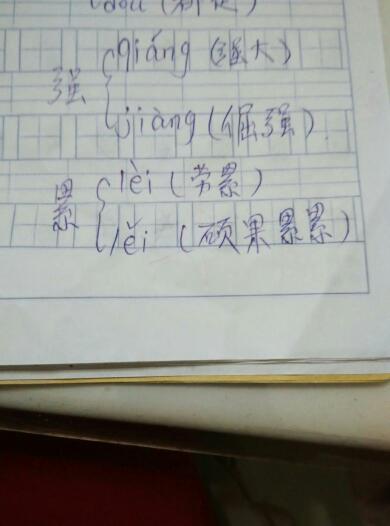 强 qiáng (强大)
jiàng (倔强)
累 lèi (劳累)
lěi (硕果累累)